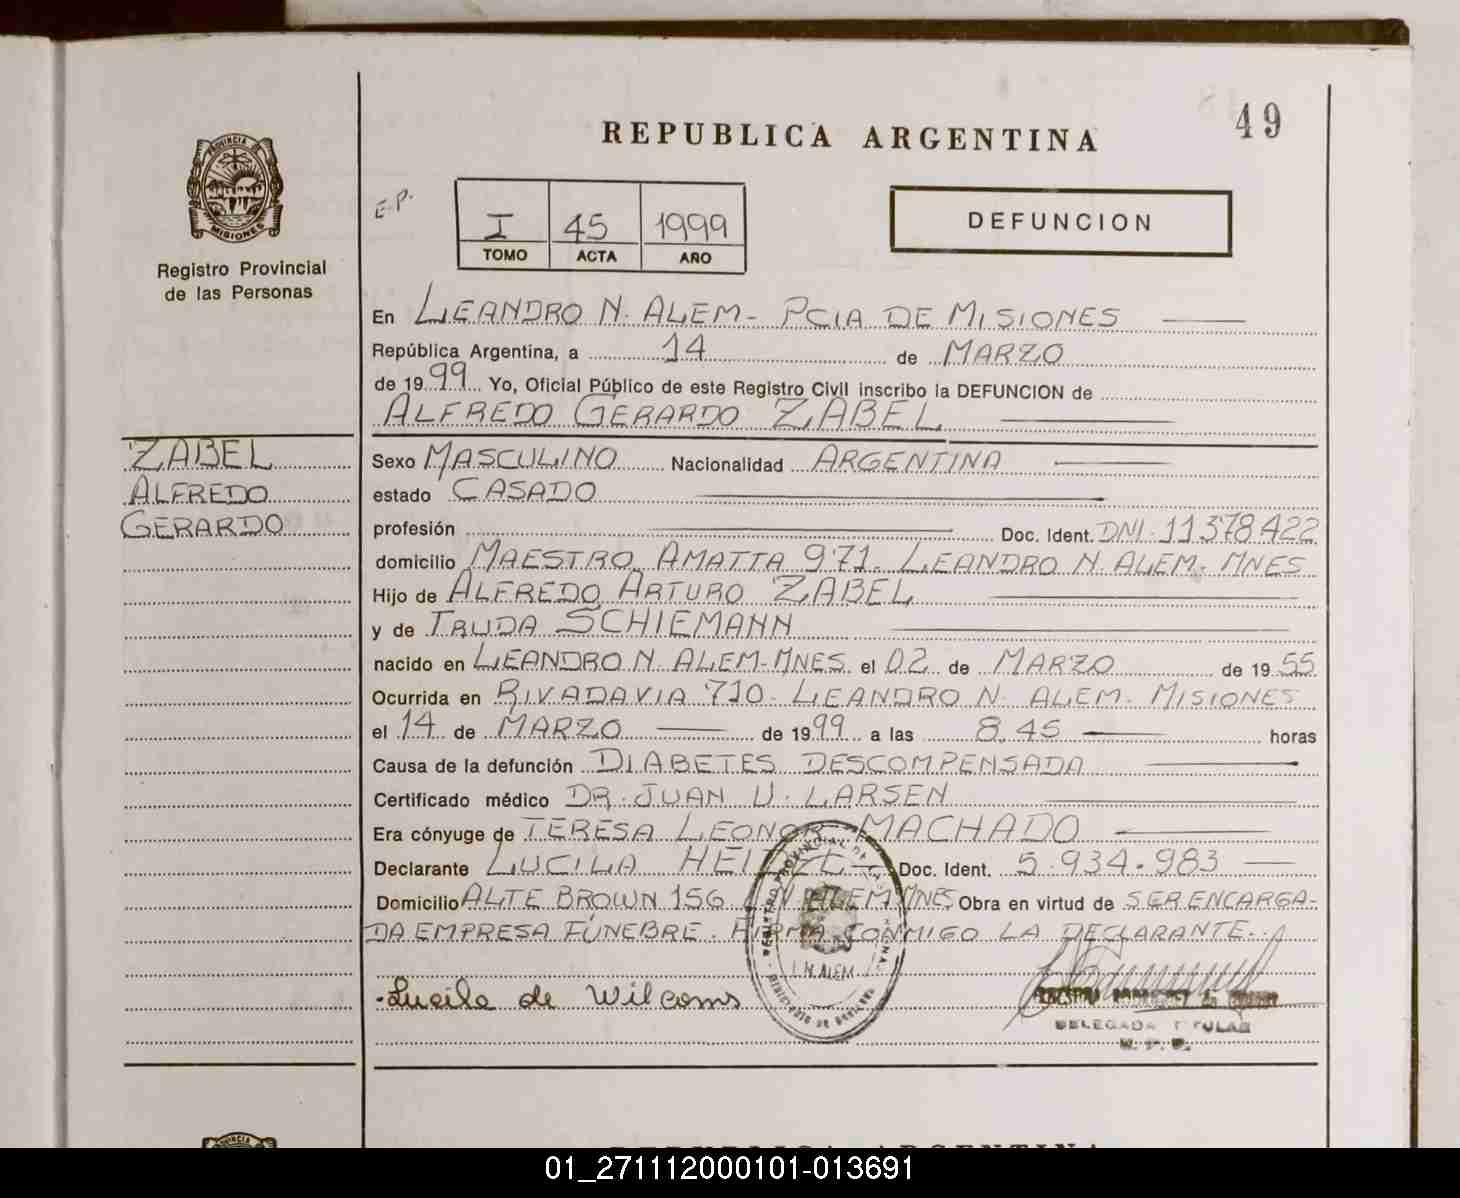 49
REPUBLICA ARGENTINA
PROVINCIA
MISIONES
Registro Provincial
de las Personas
E.P.
I 45 1999
TOMO ACTA AÑO
DEFUNCION
En LEANDRO N. ALEM - PCIA DE MISIONES
República Argentina, a 14 de MARZO
de 1999 Yo, Oficial Público de este Registro Civil inscribo la DEFUNCION de
ALFREDO GERARDO ZABEL
ZABEL
ALFREDO
GERARDO
Sexo MASCULINO Nacionalidad ARGENTINA
estado CASADO
profesión Doc. Ident. DNI. 11378.422
domicilio MAESTRO AMATTA 971. LEANDRO N. ALEM. MNES
Hijo de ALFREDO ARTURO ZABEL
y de TRUDA SCHIEMANN
nacido en LEANDRO N. ALEM-MNES. el 02 de MARZO de 1955
Ocurrida en RIVADAVIA 710. LEANDRO N. ALEM. MISIONES
el 14 de MARZO de 1999 a las 8.45 horas
Causa de la defunción DIABETES DESCOMPENSADA
Certificado médico DR. JUAN U. LARSEN
Era cónyuge de TERESA LEONOR MACHADO
Declarante LUCILA Doc. Ident. 5.934.983
Domicilio ALTE BROWN 156 L.N ALEM MNES Obra en virtud de SER ENCARGA-
DA EMPRESA FÚNEBRE. FIRMA CONMIGO LA DECLARANTE..
L.N. ALEM
Lucila de Wilcoms
DELEGADA TITULAR
PROVINCIA
REPUBLICA ARGENTINA
01_271112000101-013691